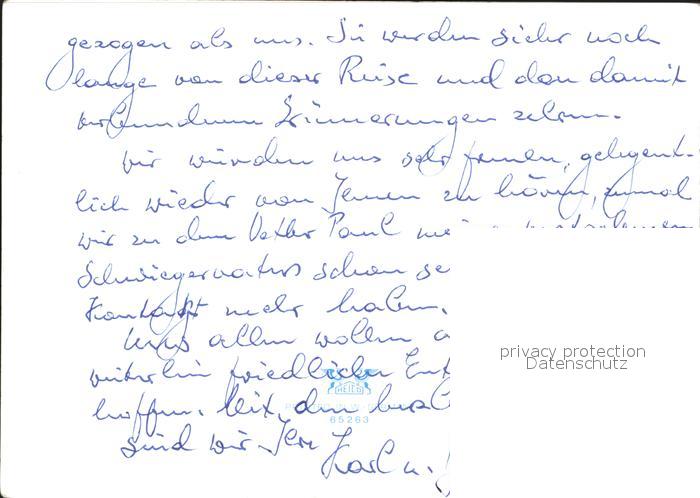 gezogen als uns. Sie werden sicher noch
lange von dieser Reise und den damit
verbundenen Erinnerungen zehren.
Wir würden uns sehr freuen, gelegent-
lich wieder von Ihnen zu hören, zumal
wir zu dem Vetter Paul
Schwiegervaters schon
Kontakt mehr haben.
Uns allen wollen
weiterhin friedliche
hoffen. Mit den
sind wir Ihre
Karl u.
privacy protection
Datenschutz
65263